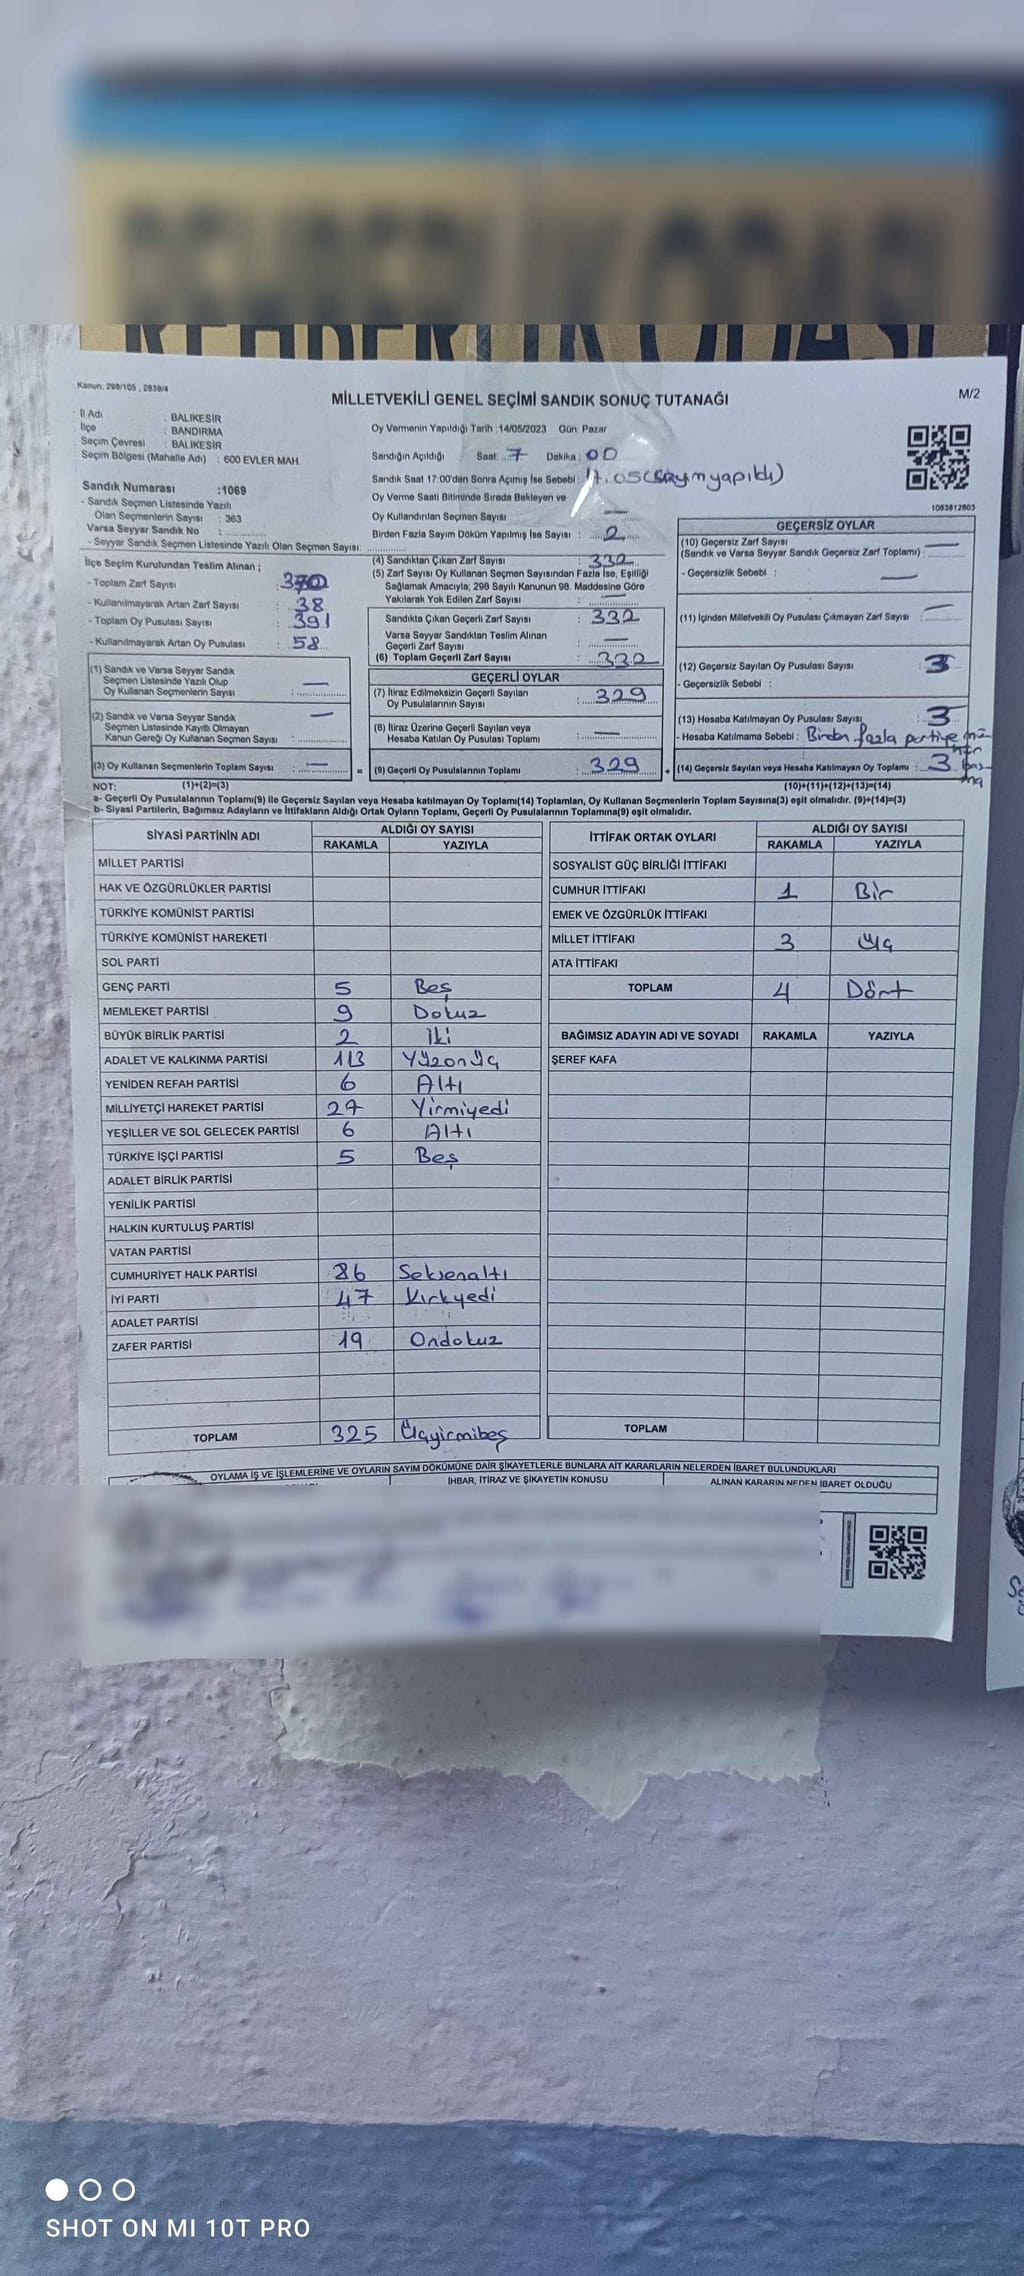 REHBERLİK ODASI
Kanun: 298/105 , 2839/4
MİLLETVEKİLİ GENEL SEÇİMİ SANDIK SONUÇ TUTANAĞI
M/2
İl Adı : BALIKESİR
İlçe : BANDIRMA
Seçim Çevresi : BALIKESİR
Seçim Bölgesi (Mahalle Adı) : 600 EVLER MAH.
Sandık Numarası :1069
- Sandık Seçmen Listesinde Yazılı
Olan Seçmenlerin Sayısı : 363
Varsa Seyyar Sandık No :
- Seyyar Sandık Seçmen Listesinde Yazılı Olan Seçmen Sayısı:
Oy Vermenin Yapıldığı Tarih :14/05/2023 Gün: Pazar
Sandığın Açıldığı Saat: 7 Dakika: 00
Sandık Saat 17:00'den Sonra Açımış İse Sebebi: 17.05 (Sayım yapıldı)
Oy Verme Saati Bitiminde Sırada Bekleyen ve
Oy Kullandırılan Seçmen Sayısı : —
Birden Fazla Sayım Döküm Yapılmış İse Sayısı : 2
1083812803
İlçe Seçim Kurulundan Teslim Alınan ;
- Toplam Zarf Sayısı : 370
- Kullanılmayarak Artan Zarf Sayısı : 38
- Toplam Oy Pusulası Sayısı : 391
- Kullanılmayarak Artan Oy Pusulası : 58
(1) Sandık ve Varsa Seyyar Sandık
Seçmen Listesinde Yazılı Olup
Oy Kullanan Seçmenlerin Sayısı : —
(2) Sandık ve Varsa Seyyar Sandık
Seçmen Listesinde Kayıtlı Olmayan
Kanun Gereği Oy Kullanan Seçmen Sayısı : —
(3) Oy Kullanan Seçmenlerin Toplam Sayısı : —
(4) Sandıktan Çıkan Zarf Sayısı : 332
(5) Zarf Sayısı Oy Kullanan Seçmen Sayısından Fazla İse, Eşitliği
Sağlamak Amacıyla; 298 Sayılı Kanunun 98. Maddesine Göre
Yakılarak Yok Edilen Zarf Sayısı : —
Sandıkta Çıkan Geçerli Zarf Sayısı : 332
Varsa Seyyar Sandıktan Teslim Alınan
Geçerli Zarf Sayısı : —
(6) Toplam Geçerli Zarf Sayısı : 332
GEÇERLİ OYLAR
(7) İtiraz Edilmeksizin Geçerli Sayılan
Oy Pusulalarının Sayısı : 329
(8) İtiraz Üzerine Geçerli Sayılan veya
Hesaba Katılan Oy Pusulası Toplamı : —
= (9) Geçerli Oy Pusulalarının Toplamı : 329
GEÇERSİZ OYLAR
(10) Geçersiz Zarf Sayısı
(Sandık ve Varsa Seyyar Sandık Geçersiz Zarf Toplamı) : —
- Geçersizlik Sebebi : —
(11) İçinden Milletvekili Oy Pusulası Çıkmayan Zarf Sayısı : —
(12) Geçersiz Sayılan Oy Pusulası Sayısı : 3
- Geçersizlik Sebebi :
(13) Hesaba Katılmayan Oy Pusulası Sayısı : 3
- Hesaba Katılmama Sebebi : Birden fazla partiye mü-
hür bas-
ma
+ (14) Geçersiz Sayılan veya Hesaba Katılmayan Oy Toplamı : 3
NOT: (1)+(2)=(3)
(10)+(11)+(12)+(13)=(14)
a- Geçerli Oy Pusulalarının Toplamı(9) ile Geçersiz Sayılan veya Hesaba katılmayan Oy Toplamı(14) Toplamları, Oy Kullanan Seçmenlerin Toplam Sayısına(3) eşit olmalıdır. (9)+(14)=(3)
b- Siyasi Partilerin, Bağımsız Adayların ve İttifakların Aldığı Ortak Oyların Toplamı, Geçerli Oy Pusulalarının Toplamına(9) eşit olmalıdır.
SİYASİ PARTİNİN ADI ALDIĞI OY SAYISI
RAKAMLA YAZIYLA
MİLLET PARTİSİ
HAK VE ÖZGÜRLÜKLER PARTİSİ
TÜRKİYE KOMÜNİST PARTİSİ
TÜRKİYE KOMÜNİST HAREKETİ
SOL PARTİ
GENÇ PARTİ 5 Beş
MEMLEKET PARTİSİ 9 Dokuz
BÜYÜK BİRLİK PARTİSİ 2 İki
ADALET VE KALKINMA PARTİSİ 113 Yüzonüç
YENİDEN REFAH PARTİSİ 6 Altı
MİLLİYETÇİ HAREKET PARTİSİ 27 Yirmiyedi
YEŞİLLER VE SOL GELECEK PARTİSİ 6 Altı
TÜRKİYE İŞÇİ PARTİSİ 5 Beş
ADALET BİRLİK PARTİSİ
YENİLİK PARTİSİ
HALKIN KURTULUŞ PARTİSİ
VATAN PARTİSİ
CUMHURİYET HALK PARTİSİ 86 Seksenaltı
İYİ PARTİ 47 Kırkyedi
ADALET PARTİSİ
ZAFER PARTİSİ 19 Ondokuz
TOPLAM 325 Üçyirmibeş
İTTİFAK ORTAK OYLARI ALDIĞI OY SAYISI
RAKAMLA YAZIYLA
SOSYALİST GÜÇ BİRLİĞİ İTTİFAKI
CUMHUR İTTİFAKI 1 Bir
EMEK VE ÖZGÜRLÜK İTTİFAKI
MİLLET İTTİFAKI 3 Üç
ATA İTTİFAKI
TOPLAM 4 Dört
BAĞIMSIZ ADAYIN ADI VE SOYADI RAKAMLA YAZIYLA
ŞEREF KAFA
TOPLAM
OYLAMA İŞ VE İŞLEMLERİNE VE OYLARIN SAYIM DÖKÜMÜNE DAİR ŞİKAYETLERLE BUNLARA AİT KARARLARIN NELERDEN İBARET BULUNDUKLARI
İHBAR, İTİRAZ VE ŞİKAYETİN KONUSU
ALINAN KARARIN NEDEN İBARET OLDUĞU
SHOT ON MI 10T PRO